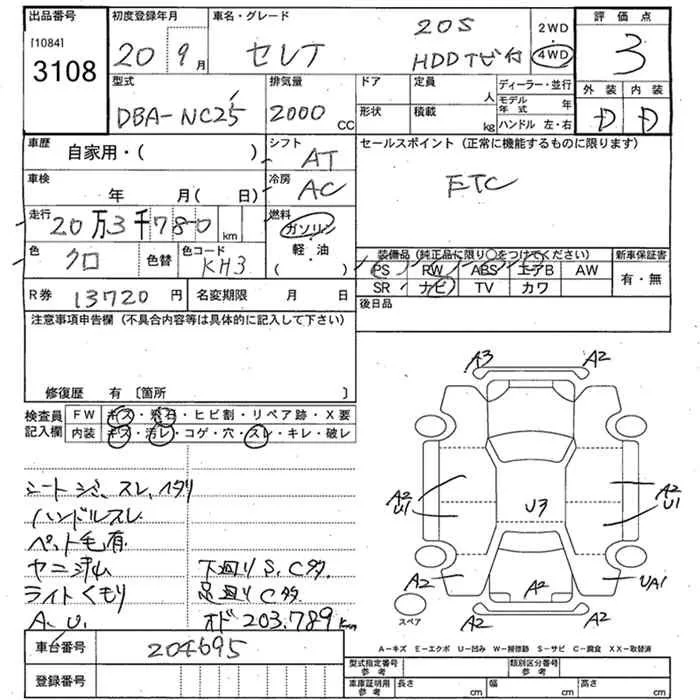 出品番号 初度登録年月 車名・グレード 評価点
[1084]
3108
20 9月 セレナ 20S HDDナビ付 2WD 4WD 3
型式 排気量 ドア 定員 人 ディーラー・並行 外装 内装
DBA-NC25 2000 CC 形状 積載 kg モデル年式 年 D D
ハンドル 左・右
車歴 自家用・( ) シフト AT セールスポイント (正常に機能するものに限ります)
車検 年 月( 日) 冷房 AC ETC
走行 20万3千780 km 燃料 ガソリン
色 クロ 色替 色コード KH3 軽・油 ( )
装備品 (純正品に限り○をつけてください) 新車保証書
PS RW ABS エアB AW 有・無
SR ナビ TV カワ
R券 13720円 名変期限 月 日 後日品
注意事項申告欄 (不具合内容等は具体的に記入して下さい)
修復歴 有 〔箇所 〕
検査員記入欄 FW キズ・飛石・ヒビ割・リペア跡・X要
内装 キズ・汚レ・コゲ・穴・スレ・キレ・破レ
シートシミ、スレ、ヘタリ
ハンドルスレ
ペット毛有
ヤニ汚ム 下廻りS、C多
ライトくもり 足廻りC多
A、U、 オド203,789km
車台番号 204695
登録番号
A3 A2
A2 U1 U3 A2 U1
A2 A2 UA1
スペア A2 A2
A-キズ E-エクボ U-凹み W-補修跡 S-サビ C-腐食 XX-取替済
型式指定番号 参考 類別区分番号 参考
車庫証明用 参考 長さ cm 幅 cm 高さ cm